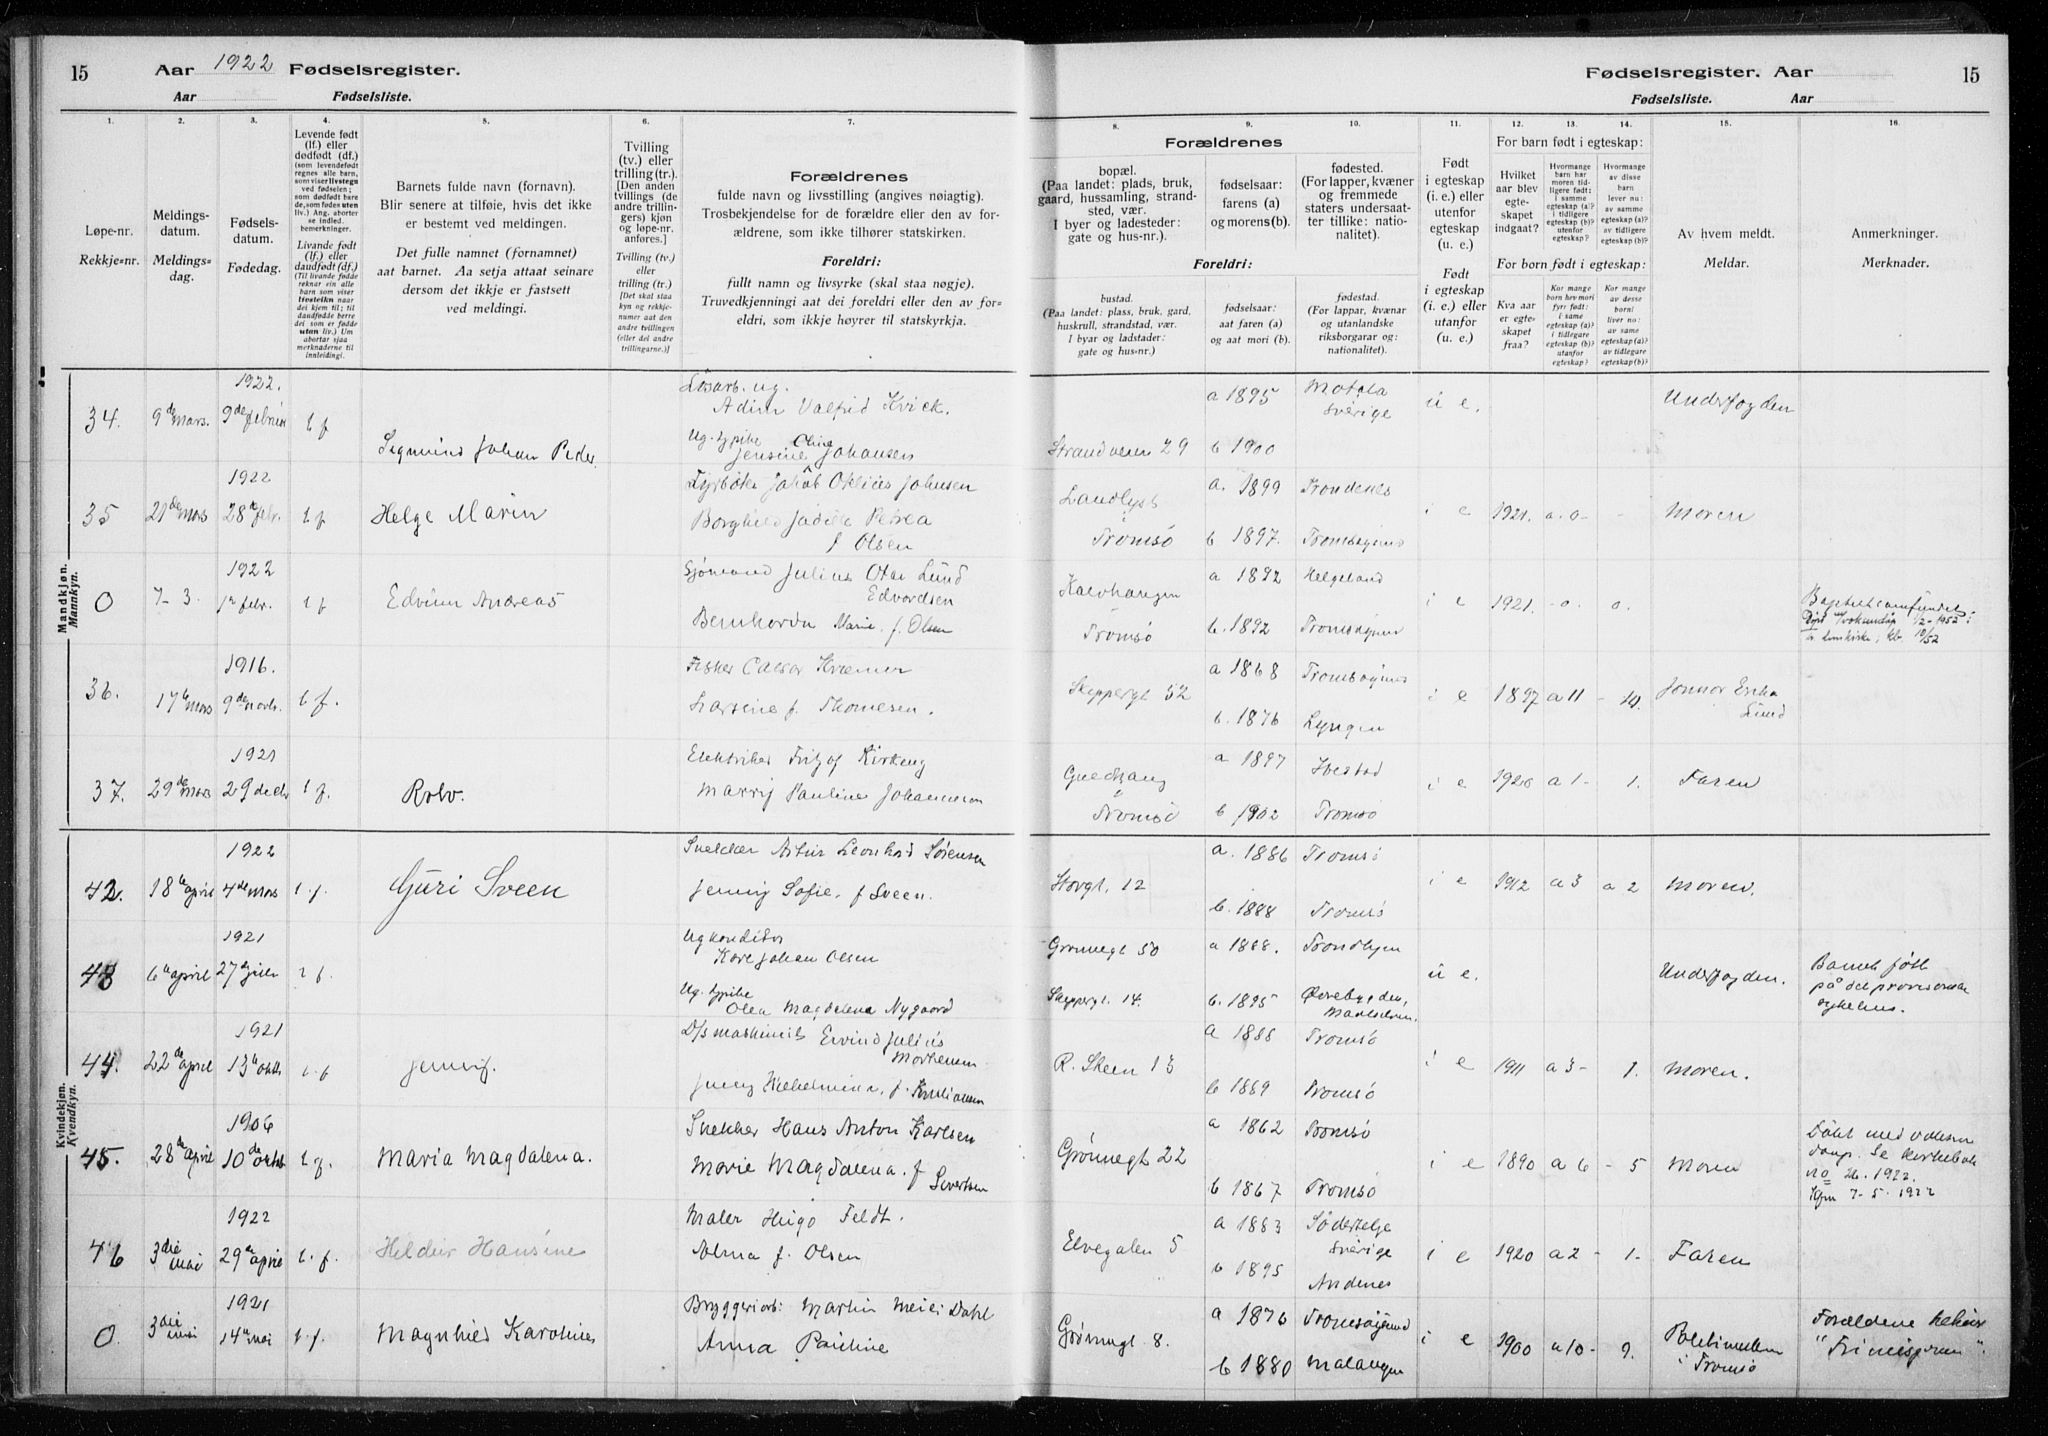 15 Aar 1922 Fødselsregister.
Aar Fødselsliste.
Fødselsregister. Aar 15
Fødselsliste. Aar
1. 2. 3. 4. 5. 6. 7. 8. 9. 10. 11. 12. 13. 14. 15. 16.
Løpe-nr.
Rekkje-nr.
Meldings-
datum.
Meldings-
dag.
Fødsels-
datum.
Fødedag.
Levende født
(lf.) eller
dødfødt (df.)
(som levendefødt
regnes alle barn,
som viser livstegn
ved fødselen;
som dødfødt bare
de, som fødes uten
liv.) Ang. aborter
se indled.
bemerkninger.
Livande født
(lf.) eller
daudfødt (df.)
(Til livande fødde
reknar ein alle
born som viser
livsteikn naar
dei kjem til; til
daudfødde berre
dei som er fødde
utan liv.) Um
abortar sjaa
merknaderne til
innleidingi.
Barnets fulde navn (fornavn).
Blir senere at tilføie, hvis det ikke
er bestemt ved meldingen.
Det fulle namnet (fornamnet)
aat barnet. Aa setja attaat seinare
dersom det ikkje er fastsett
ved meldingi.
Tvilling
(tv.) eller
trilling (tr.).
[Den anden
tvillings (de
andre trillin-
gers) kjøn
og løpe-nr.
anføres.]
Tvilling (tv.)
eller
trilling (tr.)
[Det skal staa
kyn og rekkje-
numer aat den
andre tvillingen
(eller dei andre
trillingarne.)]
Forældrenes
fulde navn og livsstilling (angives nøiagtig).
Trosbekjendelse for de forældre eller den av for-
ældrene, som ikke tilhører statskirken.
Foreldri:
fullt namn og livsyrke (skal staa nøgje).
Truvedkjenningi aat dei foreldri eller den av for-
eldri, som ikkje høyrer til statskyrkja.
Forældrenes
bopæl.
(Paa landet: plads, bruk,
gaard, hussamling, strand-
sted, vær.
I byer og ladesteder:
gate og hus-nr.).
fødselsaar:
farens (a)
og morens (b).
fødested.
(For lapper, kvæner
og fremmede
staters undersaat-
ter tillike: natio-
nalitet).
Foreldri:
bustad.
(Paa landet: plass, bruk, gard,
huskrull, strandstad, vær.
I byar og ladstader:
gate og hus-nr.)
fødselsaar:
aat faren (a)
og aat mori (b).
fødestad.
(For lappar, kvænar
og utanlandske
riksborgarar og:
nationalitet).
Født
i egteskap
(i. e.) eller
utenfor
egteskap
(u. e.)
Født
i egteskap
(i. e.) eller
utanfor
(u. e.)
For barn født i egteskap:
Hvilket
aar blev
egte-
skapet
indgaat?
Hvormange
barn har
moren tid-
ligere født:
i samme
egteskap (a)?
i tidligere
egteskap (b)?
utenfor
egteskap?
Hvormange
av disse
barn
lever nu:
av samme
egteskap (a)?
av tidligere
egteskap (b)?
For born født i egteskap:
Kva aar
er egte-
skapet
fraa?
Kor mange
born hev mori
fyrr født:
i same
egteskap (a)?
i tidlegare
egteskap (b)?
utanfor
egteskap?
Kor mange
av desse
borni
liver no:
av same
egteskap (a)?
av tidlegare
egteskap (b)?
Av hvem meldt.
Meldar.
Anmerkninger.
Merknader.
Mandkjøn.
Mannkyn.
34. 9de mars. 1922. 9de februar l f
Sigmund Johan Peder.
Løsarb. ug.
Adim Valfrid Kvick.
Ug. typike Oline
Jensine Johansen
Strandveien 29 a 1895 Motala
Sverige
b 1900 u e. Underfogden
35 21de mars 1922 28de febr. l f Helge Marin
Fyrbøter Jakob Johnsen
Borghild Petrea
f Olsen
Landlyst
i
Tromsø a. 1899 Trondenes
b 1897. Tromsøysund i e 1921. a.0- - Moren
0 7-3. 1922 1te febr. l f Edvinn Andreas
Sjømand Julius Otar Lund
Edvardsen
Bernharda Marie. f. Olsen
Tromsø a 1892 Helgeland
b. 1892 Tromsøysund i e 1921. -0. 0.
Baptistsamfundet
36. 17te mars 1916. 9de novbr. l f.
Fisker Cæsar Kræmer
Larsine f. Thomesen.
Skippergt 52 a 1868 Tromsøysund
b. 1876 Lyngen i e 1897 a 11 - 10. Lund
37. 29de mars 1921 29 decbr l f. Rolv.
Elektriker Fritjof Kirkeng
Marry Pauline Johannesen
Tromsø a 1897 Ibestad
b 1902 Tromsø i e 1920 a 1- 1. Faren
Kvindekjøn.
Kvendkyn.
42. 18te april 1922 4de mars l.f. Guri Sveen
Snekker Artur Leonhard Sørensen
Jenny Sofie. f Sveen.
Storgt. 12 a. 1886 Tromsø
b. 1888 Tromsø i e 1912 a 3 a 2 Moren.
43 6te april 1921 27de l f.
Ug konditor
Kåre Johan Olsen
Ug. typike
Olea Magdalena Nygaard
Grønnegt 50 a 1888. Trondhjem
Skippergt. 14. b. 1895 Øverbygden,
Maalselven. u e. Underfogden.
Barnet født
på det provisoriske
sykehus.
44. 22de april 1921 13te oktbr l.f Jenny.
D/s maskinist Eivind Julius
Jenny Wilhelmina, f. Kristiansen
R. Skeen 13 a 1888 Tromsø
b 1889 Tromsø i e 1911 a 3- 1. Moren.
45. 28de april 1906 10de oktbr l f. Maria Magdalena.
Snekker Hans Anton Karlsen
Marie Magdalena. f
Sivertsen
Grønnegt 22 a 1862 Tromsø
b 1867 Tromsø i e 1890 a 6 - 5 Moren
Døbt med voksen
daap. Se kirkebok
no 26. 1922.
7-5. 1922
46 3die mai 1922 29de april l.f. Hildur Hansine
Maler Hugo Feldt.
Alma f. Olsen
Elvegaten 5 a 1883 Södertelje
Sverige
b 1895 Andenes i e 1920 a 2 - 1- Faren
0. 3die mai 1921 14de mai l.f. Magnhild Karoline
Bryggeriarb: Martin Meier Dahl
Anna Pauline
Grønnegt 8. a 1876 Tromsøysund
b 1880 Malangen i e 1900 a 10- 9. Politimesteren
i Tromsø
Forældrene